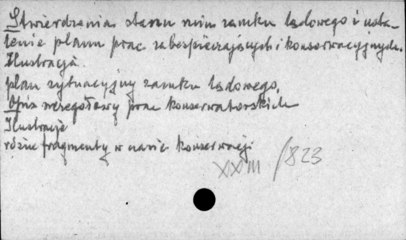 Stwierdzenia stanu ruin zamku lądowego i usta-
lenie planu prac zabezpieczających i konserwacyjnych.
Ilustracja
plan sytuacyjny zamku lądowego,
Opis szczegółowy prac konserwatorskich
Ilustracje
różne fragmenty w czasie konserwacji
XXIII/823